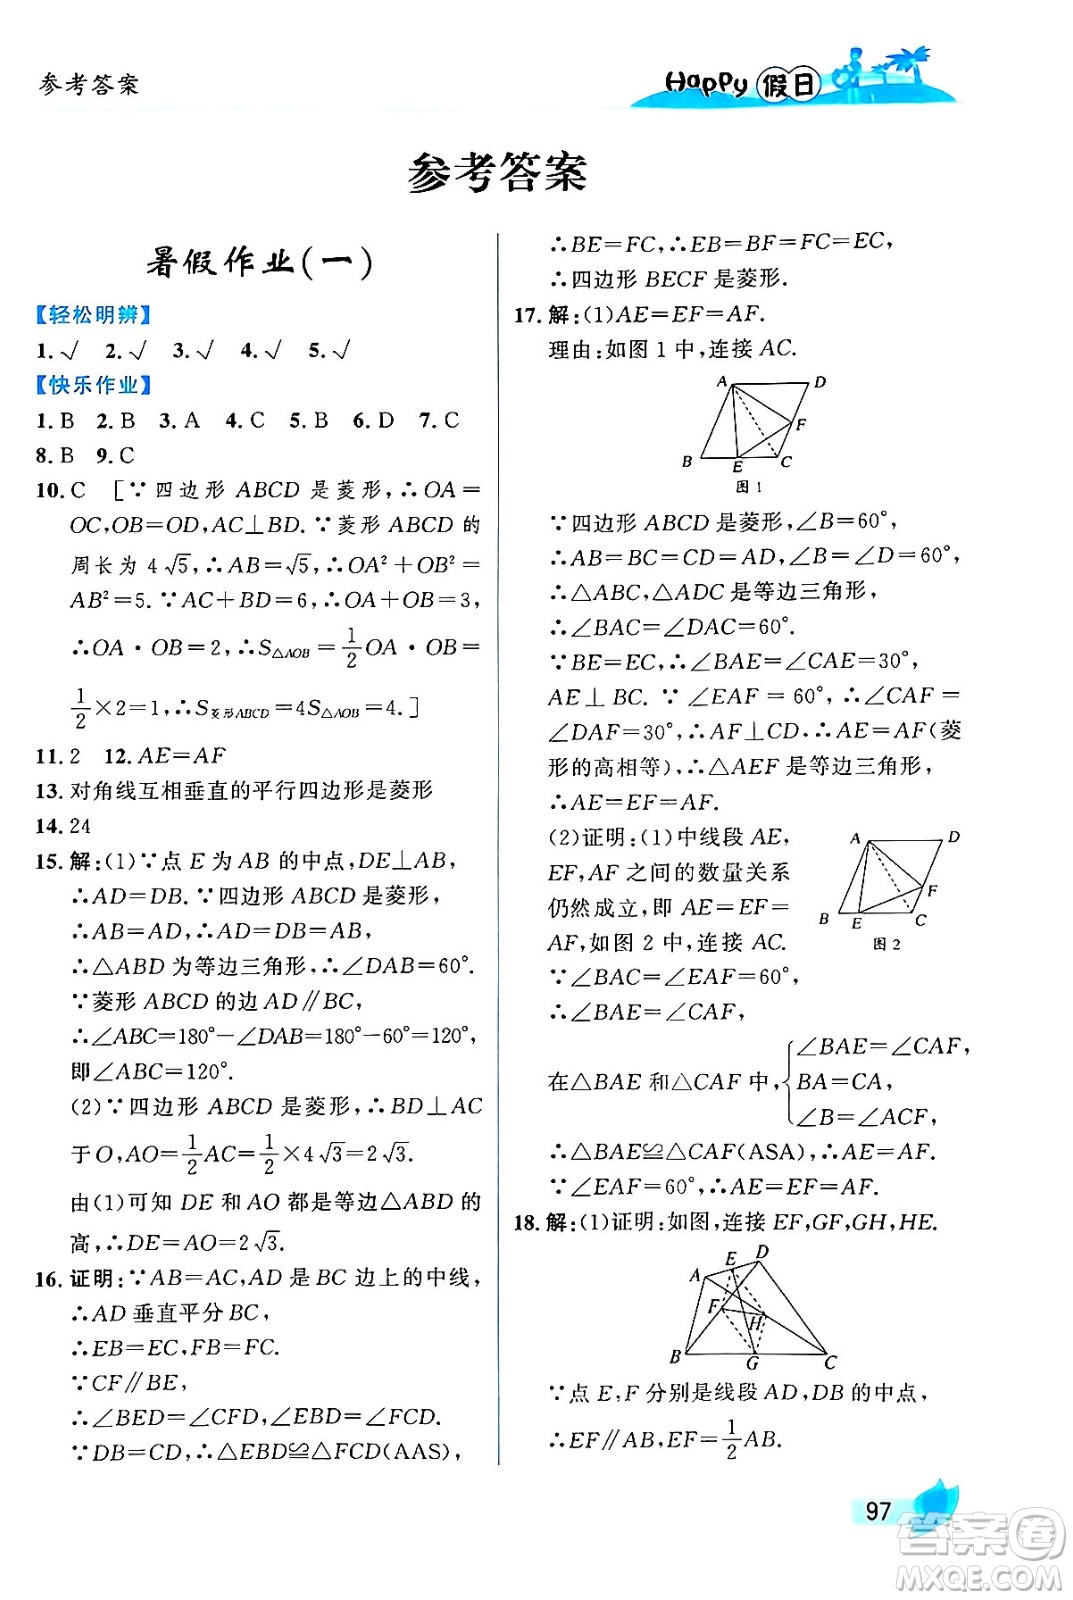 参考答案
Happy 假日
参考答案
暑假作业(一)
【轻松明辨】
1.√ 2.√ 3.√ 4.√ 5.√
【快乐作业】
1.B 2.B 3.A 4.C 5.B 6.D 7.C
8.B 9.C
10.C [∵四边形 ABCD 是菱形,∴OA=
OC,OB=OD,AC⊥BD.∵菱形 ABCD 的
周长为 4√5,∴AB=√5,∴OA²+OB²=
AB²=5.∵AC+BD=6,∴OA+OB=3,
∴OA·OB=2,∴S△AOB=1/2 OA·OB=
1/2×2=1,∴S菱形ABCD=4S△AOB=4.]
11.2 12.AE=AF
13.对角线互相垂直的平行四边形是菱形
14.24
15.解:(1)∵点 E 为 AB 的中点,DE⊥AB,
∴AD=DB.∵四边形 ABCD 是菱形,
∴AB=AD,∴AD=DB=AB,
∴△ABD 为等边三角形,∴∠DAB=60°.
∵菱形 ABCD 的边 AD∥BC,
∴∠ABC=180°-∠DAB=180°-60°=120°,
即∠ABC=120°.
(2)∵四边形 ABCD 是菱形,∴BD⊥AC
于 O,AO=1/2 AC=1/2×4√3=2√3.
由(1)可知 DE 和 AO 都是等边△ABD 的
高,∴DE=AO=2√3.
16.证明:∵AB=AC,AD 是 BC 边上的中线,
∴AD 垂直平分 BC,
∴EB=EC,FB=FC.
∵CF∥BE,
∴∠BED=∠CFD,∠EBD=∠FCD.
∵DB=CD,∴△EBD≌△FCD(AAS),
∴BE=FC,∴EB=BF=FC=EC,
∴四边形 BECF 是菱形.
17.解:(1)AE=EF=AF.
理由:如图 1 中,连接 AC.
A D
F
B E C
图 1
∵四边形 ABCD 是菱形,∠B=60°,
∴AB=BC=CD=AD,∠B=∠D=60°,
∴△ABC,△ADC 是等边三角形,
∴∠BAC=∠DAC=60°.
∵BE=EC,∴∠BAE=∠CAE=30°,
AE⊥BC.∵∠EAF=60°,∴∠CAF=
∠DAF=30°,∴AF⊥CD.∴AE=AF(菱
形的高相等),∴△AEF 是等边三角形,
∴AE=EF=AF.
(2)证明:(1)中线段 AE,
EF,AF 之间的数量关系
仍然成立,即 AE=EF=
AF,如图 2 中,连接 AC.
A D
F
B E C
图 2
∵∠BAC=∠EAF=60°,
∴∠BAE=∠CAF,
∠BAE=∠CAF,
在△BAE 和△CAF 中,{BA=CA,
∠B=∠ACF,
∴△BAE≌△CAF(ASA),∴AE=AF.
∵∠EAF=60°,∴AE=EF=AF.
18.解:(1)证明:如图,连接 EF,GF,GH,HE.
E D
A
F H
B G C
∵点 E,F 分别是线段 AD,DB 的中点,
∴EF∥AB,EF=1/2 AB.
97
答案卷
MXQE.COM